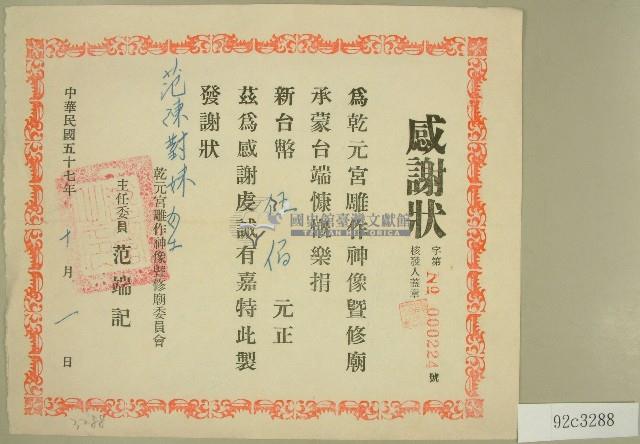 感謝狀
字第 No 000224 號
核發人蓋章
為乾元宮雕作神像暨修廟
承蒙台端慷慨樂捐
新台幣 伍佰 元正
茲為感謝虔誠有嘉特此製
發謝狀
范陳對妹 女士
乾元宮雕作神像暨修廟委員會
主任委員 范端記
中華民國五十七年 十 月 一 日
國史館臺灣文獻館
TAIWAN HISTORICA
92c3288